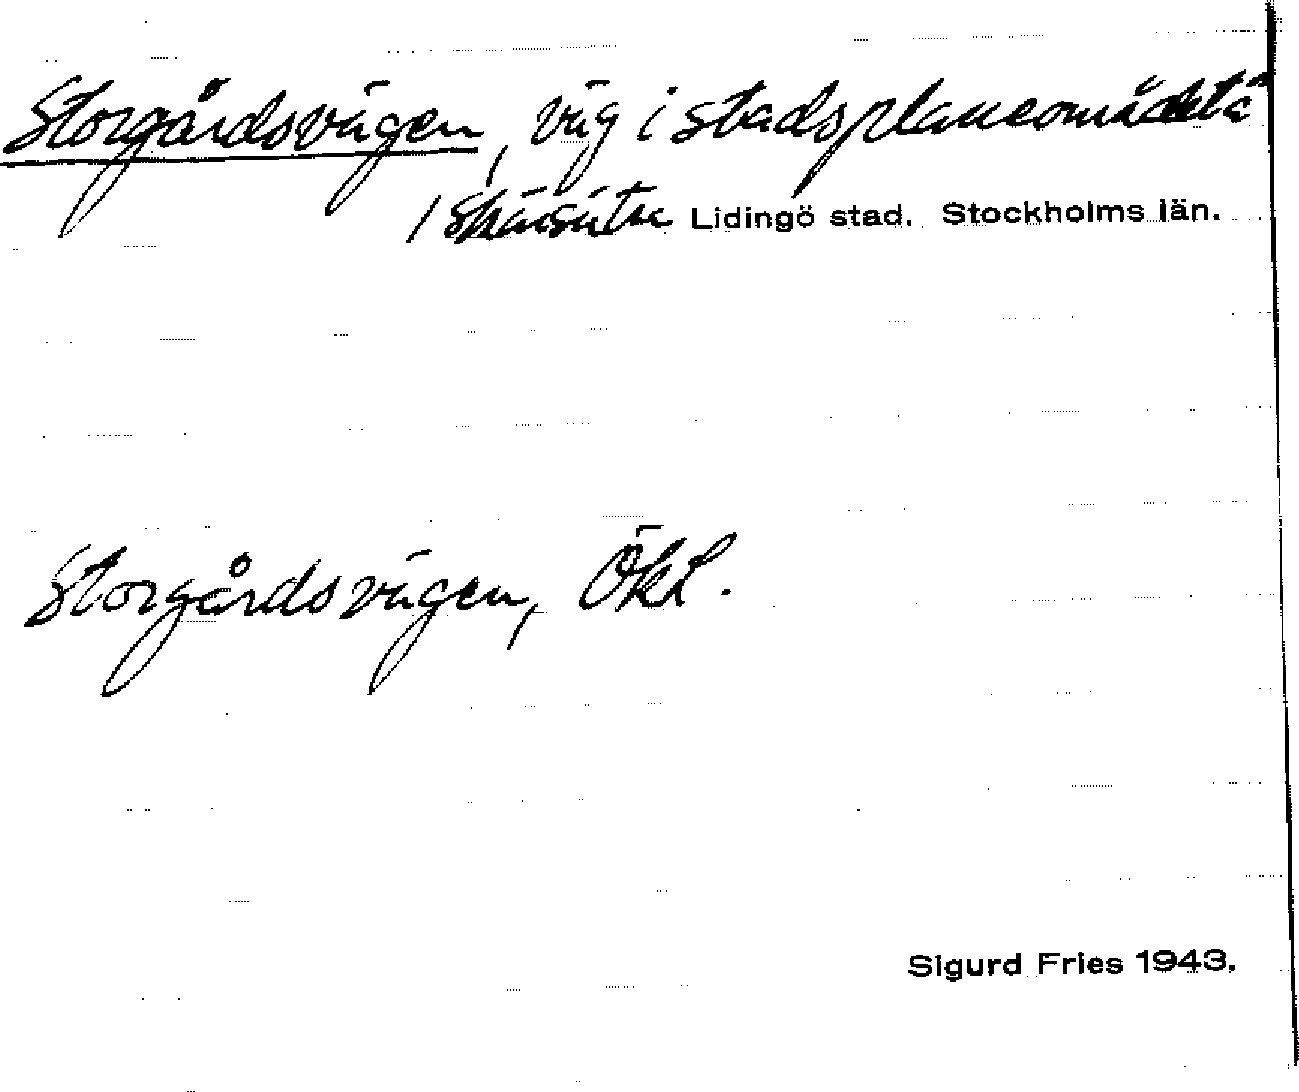 Storgårdsvägen, väg i stadsplaneområdet å
/ Skärsätra Lidingö stad. Stockholms län.
Storgårdsvägen, Ökl.
Sigurd Fries 1943.